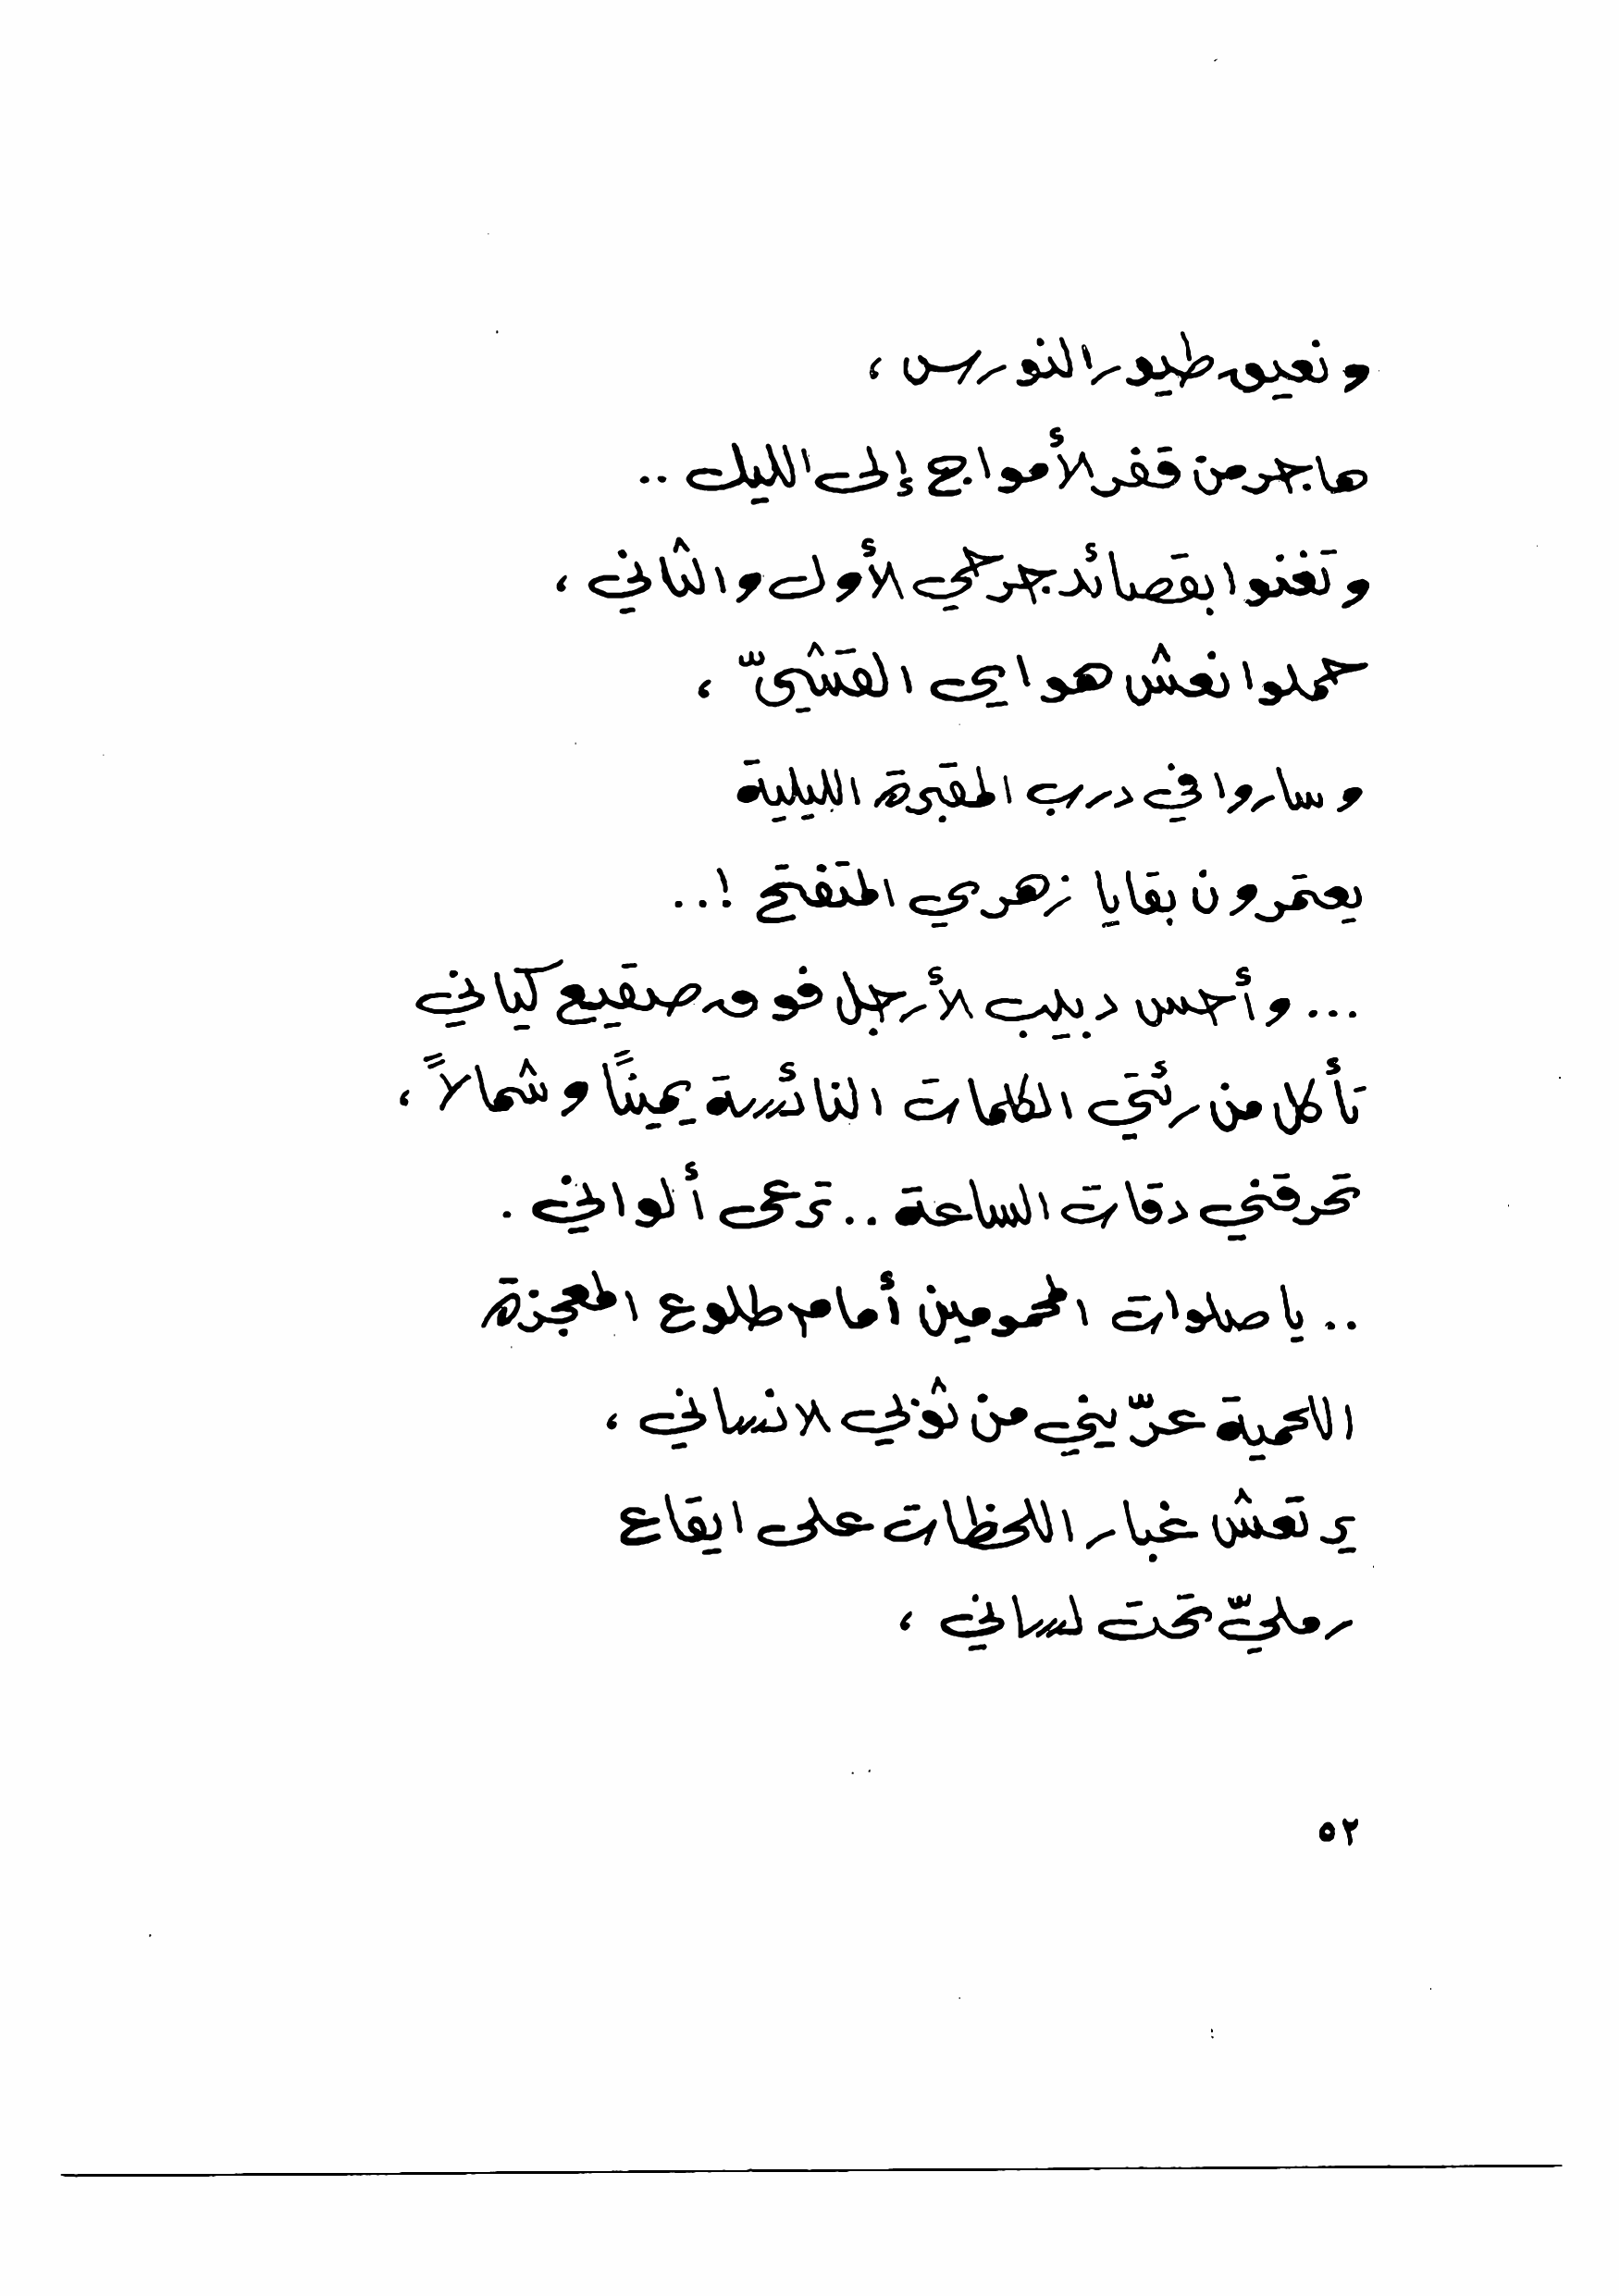 ونعيق طيور النورس ،
هاجر من قفر الأمواج إلى الليل ..
وتغنوا بقصائد جرحي الأول والثاني ،
حملوا نعش هواي القشيّ ،
وساروا في درب المقبرة الليلية
يعتمرون بقايا زهري المتفتح ! ..
... وأحس دبيب الأرجل فوق صقيع كياني
تأكل من رئتي الكلمات النائسة يمينًا وشمالاً ،
تحرقني دقات الساعة .. ترعى ألواني .
.. يا صلوات المحمومين أمام طلوع المعجزة
اللاحمية عرّيني من ثوبي الانساني ،
يرتعش غبار اللحظات على ايقاع
رمليّ تحت لساني ،
٥٢